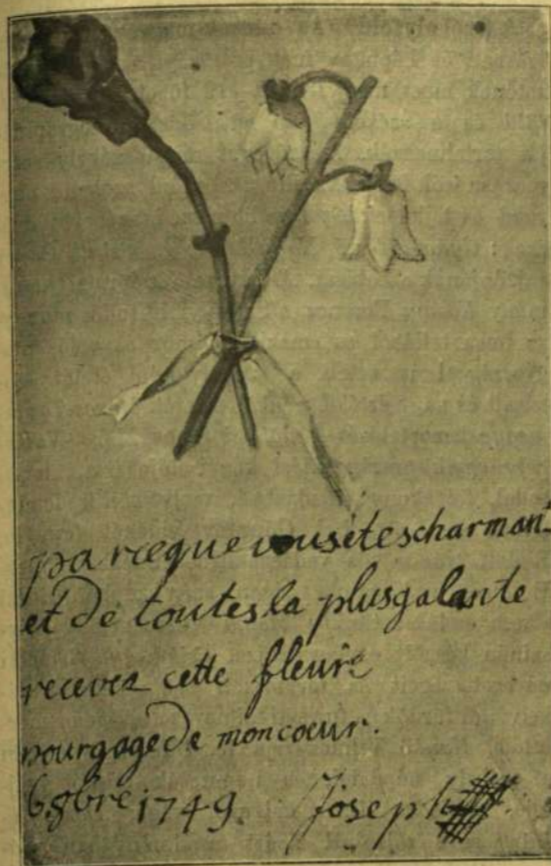 parceque vous ete scharmant
et de toutes la plus galante
recevez cette fleure
pour gage de mon coeur.
6. 8bre 1749. Joseph